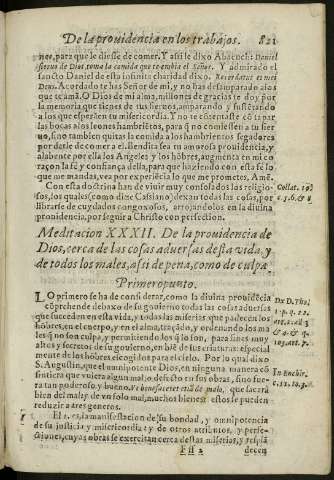 De la prouidencia en los trabajos. 821
nes, para que le diesse de comer. Y assi le dixo Abacuch: Daniel
sieruo de Dios, toma la comida que te embia el Señor. Y admirado el
sancto Daniel de esta infinita charidad dixo. Recordatus es mei
Deus. Acordado te has Señor de mi, y no has desamparado a los
que te amã. O Dios de mi alma, millones de gracias te doy por
la memoria que tienes de tus sieruos, amparando y sustẽtando
a los que esperan tu misericordia. Y no te cõtentaste cõ tapar
las bocas a los leones hambrientos, para q̃ no comiessen a tu sier
uo, sino tambien quitas la comida a los hambrientos segadores
por darle de comer a el. Bendita sea tu amorosa prouidencia, y
alabente por ella los Angeles y los hõbres, augmenta en mi co
raçon la fé y confiança della, para que haziendo con esta fé lo
que me mandas, vea por experiẽcia lo que me prometes, Amẽ.
Con esta doctrina han de viuir muy consolados los religio-
sos, los quales (como dize Cassiano) dexan todas las cosas, por
librarse de cuydados congoxosos, arrojandose en la diuina
prouidencia, por seguir a Christo con perfection.
Collat. 19.
c. 5. 6. & 8
Meditacion XXXII. De la prouidencia de
Dios, cerca de las cosas aduersas desta vida, y
de todos los males, assi de pena, como de culpa.
Primero punto.
LO primero se ha de considerar, como la diuina prouidẽcia
cõprehende debaxo de su gouierno todas las cosas aduersas
que suceden en esta vida, y todas las miserias que padecen los
hõbres, en el cuerpo, y en el alma, traçãdo, y ordenando los ma
les q̃ no son culpa, y permitiendo los q̃ lo son, para fines muy
altos y secretos de su gouierno, en biẽ de sus criaturas: especial
mente de los hombres escogidos para el cielo. Por lo qual dixo
S. Augustin, que el omnipotente Dios, en ninguna manera cõ
sintiera que vuiera algun mal, o defecto en sus obras, sino fue-
ra tan poderoso y bueno, Vt benefaceret etiã de malo, que sacara
bien del mal: y de vn solo mal, muchos bienes: estos se pueden
reduzir a tres generos.
Ex D. Tho.
1. p. q. 22.
art. 2. ad 2
In Enchir.
c. 11.
El 1. es, la manifestacion de su bondad, y omnipotencia
de su justicia y misericordia, y de otros atributos, y perfe-
ctiones, cuyas obras se exercitan cerca destas miserias, y respla
Fff 2 decen